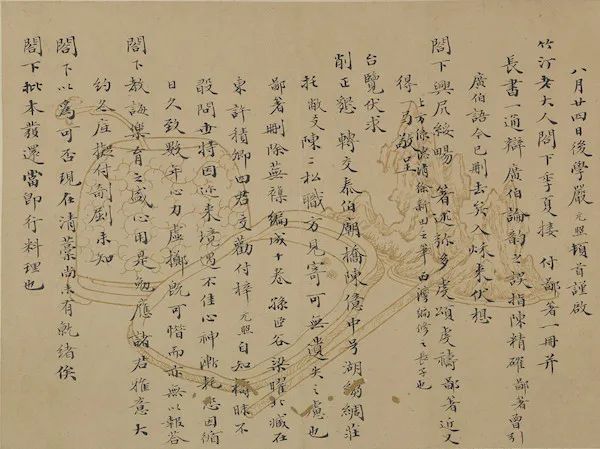 八月廿四日後學嚴元照頓首謹啟
竹汀老大人閣下季夏接 付鄙著一冊并
長書一通辯廣伯論韵之誤指陳精確鄙著曾引
廣伯語今已刪去矣入秋來伏想
閣下興居綏暢 著述弥多虔頌虔禱鄙著近又
得一 敬呈 上方係 清徐新田 筆白灣編修之長子也
台覽伏求
削正懇 轉交泰伯廟橋陳億中号湖縐綢莊
托敝友陳二松職方見寄可無遺失之慮也
鄙著刪除蕪襍編成十卷孫 谷梁曜北臧在
東許積卿四君交勸付梓元照自知檮昧不
敢問世特因近來境遇不佳心神漸耗恐因循
日久致數年心力虛擲既可惜而亦無以報答
閣下教誨樂育之盛心用是勉應諸君雅意大
約冬底擬付剞劂未知
閣下以為可否現在清藁尚未有就緒俟
閣下批本發還當即行料理也